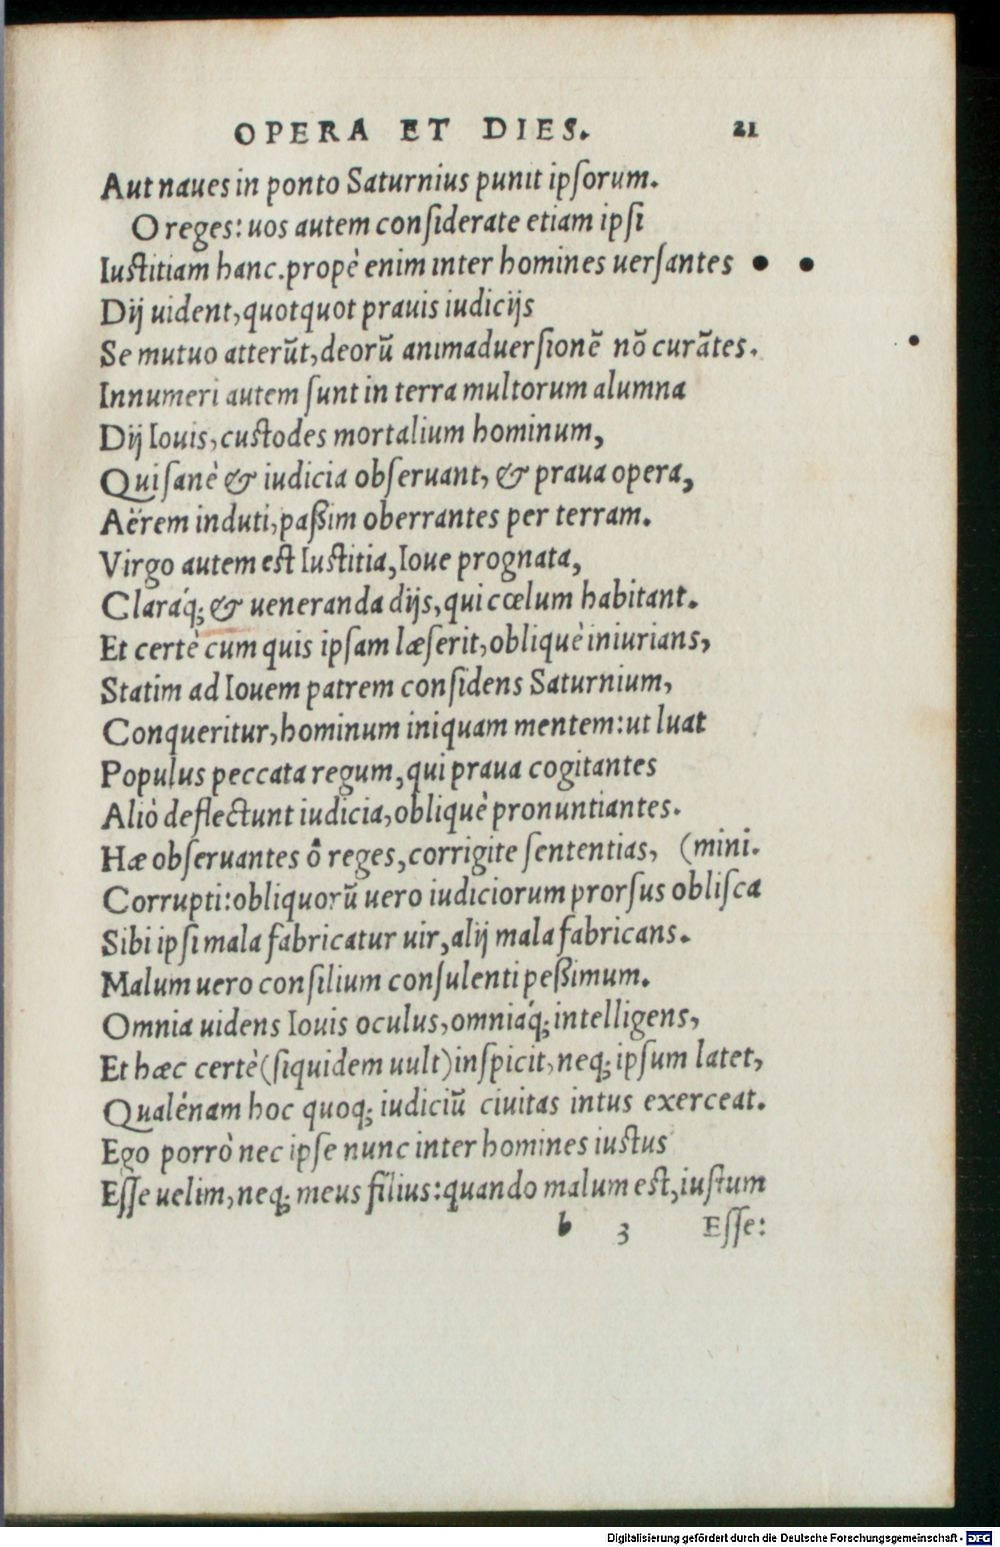 OPERA ET DIES. 21
Aut naues in ponto Saturnius punit ipſorum.
O reges: uos autem conſiderate etiam ipſi
Iuſtitiam hanc. propè enim inter homines uerſantes
Dij uident, quotquot prauis iudicijs
Se mutuo atterũt, deorũ animaduerſionẽ nõ curãtes.
Innumeri autem ſunt in terra multorum alumna
Dij Iouis, cuſtodes mortalium hominum,
Qui ſanè & iudicia obſeruant, & praua opera,
Aërem induti, paßim oberrantes per terram.
Virgo autem eſt Iuſtitia, Ioue prognata,
Claráq; & ueneranda dijs, qui cœlum habitant.
Et certè cum quis ipſam læſerit, obliquè iniurians,
Statim ad Iouem patrem conſidens Saturnium,
Conqueritur, hominum iniquam mentem: ut luat
Populus peccata regum, qui praua cogitantes
Aliò deflectunt iudicia, obliquè pronuntiantes.
Hæ obſeruantes ô reges, corrigite ſententias, (mini.
Corrupti: obliquorũ uero iudiciorum prorſus obliſca
Sibi ipſi mala fabricatur uir, alij mala fabricans.
Malum uero conſilium conſulenti peßimum.
Omnia uidens Iouis oculus, omniáq; intelligens,
Et hæc certè (ſiquidem uult) inſpicit, neq; ipſum latet,
Qualénam hoc quoq; iudiciũ ciuitas intus exerceat.
Ego porrò nec ipſe nunc inter homines iuſtus
Eſſe uelim, neq; meus filius: quando malum eſt, iuſtum
b 3 Eſſe:
Digitalisierung gefördert durch die Deutsche Forschungsgemeinschaft - DFG